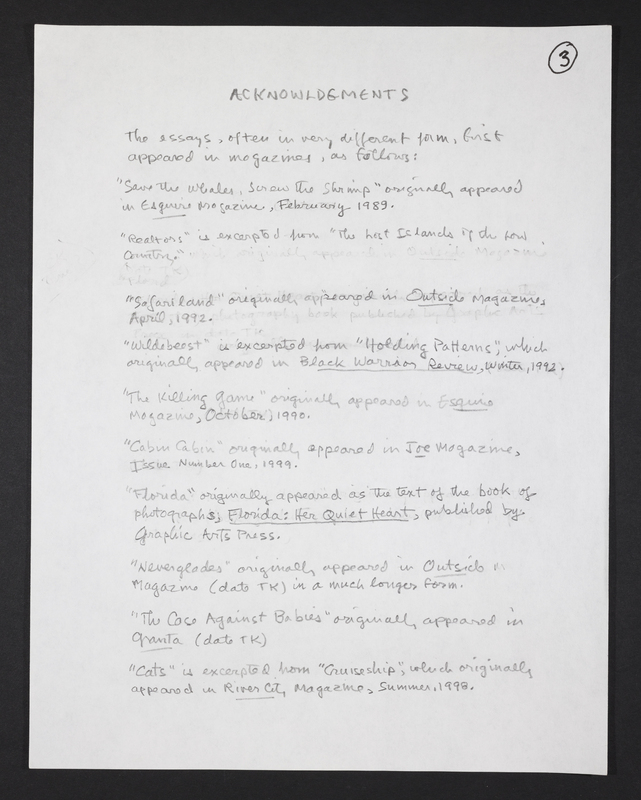 3
ACKNOWLDGMENTS
The essays, often in very different form, first
appeared in magazines, as follows:
"Save the Whales, Screw the Shrimp" originally appeared
in Esquire Magazine, February 1989.
"Realtors" is excerpted from "The Last Islands of the Low
Country."
"Safariland" originally appeared in Outside Magazine,
April, 1992.
"Wildebeest" is excerpted from "Holding Patterns", which
originally appeared in Black Warrior Review, Winter, 1992.
"The Killing Game" originally appeared in Esquire
Magazine, October, 1990.
"Cabin Cabin" originally appeared in Joe Magazine,
Issue Number One, 1999.
"Florida" originally appeared as the text of the book of
photographs, Florida: Her Quiet Heart, published by
Graphic Arts Press.
"Neverglades" originally appeared in Outside
Magazine (date TK) in a much longer form.
"The Case Against Babies" originally appeared in
Granta (date TK)
"Cats" is excerpted from "Cruiseship", which originally
appeared in River City Magazine, Summer, 1998.